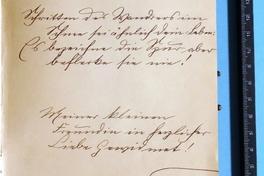 Schritten des Wandrers im
Schnee sei ähnlich dein Leben:
Es bezeichne die Spur, aber
beflecke sie nie!
Meiner kleinen
Freundin in herzlicher
Liebe gewidmet!